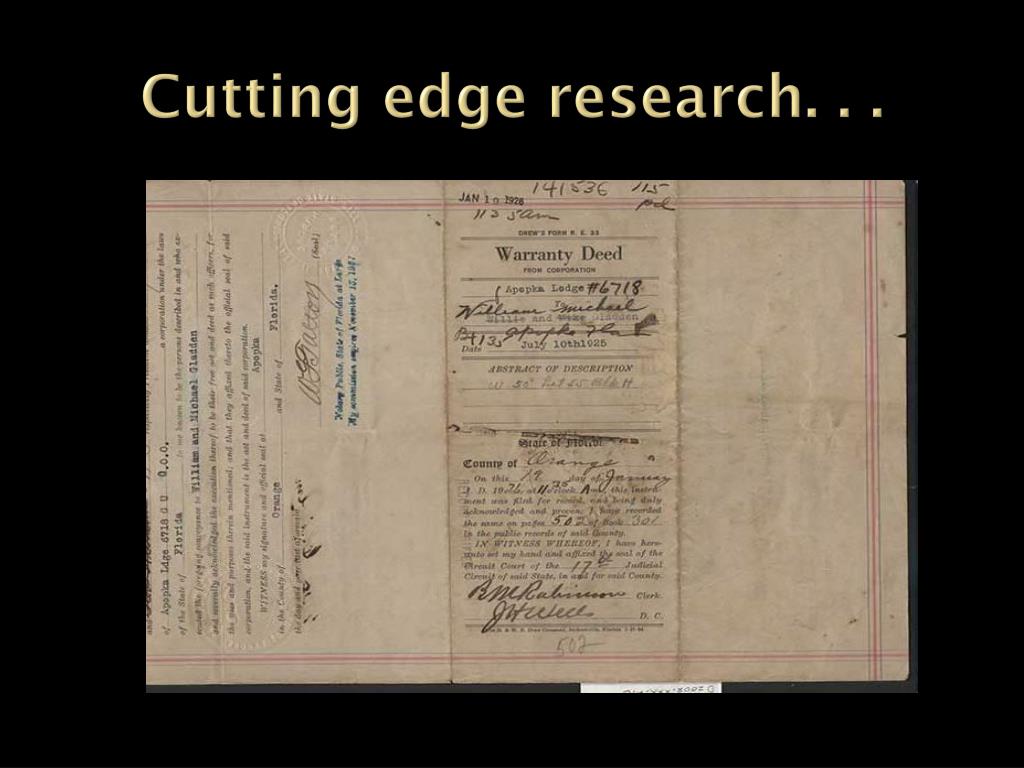 Cutting edge research. . .
141536 115
JAN 10 1926 pd
1135am
DREW'S FORM R. E. 33
Warranty Deed
FROM CORPORATION
Apopka Lodge #6718
To
William Michael
Willie and Gladden
Apopka Fla
Date July 10th1925
ABSTRACT OF DESCRIPTION
State of Florida
County of Orange
On this 12 day of January
A. D. 19 at 11 35 o'clock A m, this instru-
ment was filed for record, and being duly
acknowledged and proven, I have recorded
the same on pages 502 of Book 301
in the public records of said County.
IN WITNESS WHEREOF, I have here-
unto set my hand and affixed the seal of the
Circuit Court of the 17th Judicial
Circuit of said State, in and for said County.
B M Robinson Clerk.
D. C.
502
a corporation under the laws
of Apopka Ldge 6718 G U O.O.O.
of the State of Florida to me known to be the persons described in and who ex-
ecuted the foregoing conveyance to William and Michael Gladden
and severally acknowledged the execution thereof to be their free act and deed as such officers, for
the uses and purposes therein mentioned; and that they affixed thereto the official seal of said
corporation, and the said instrument is the act and deed of said corporation.
WITNESS my signature and official seal at Apopka
in the County of Orange and State of Florida,
the day and year last aforesaid.
(Seal)
Notary Public, State of Florida at Large
My commission expires November 15, 1927